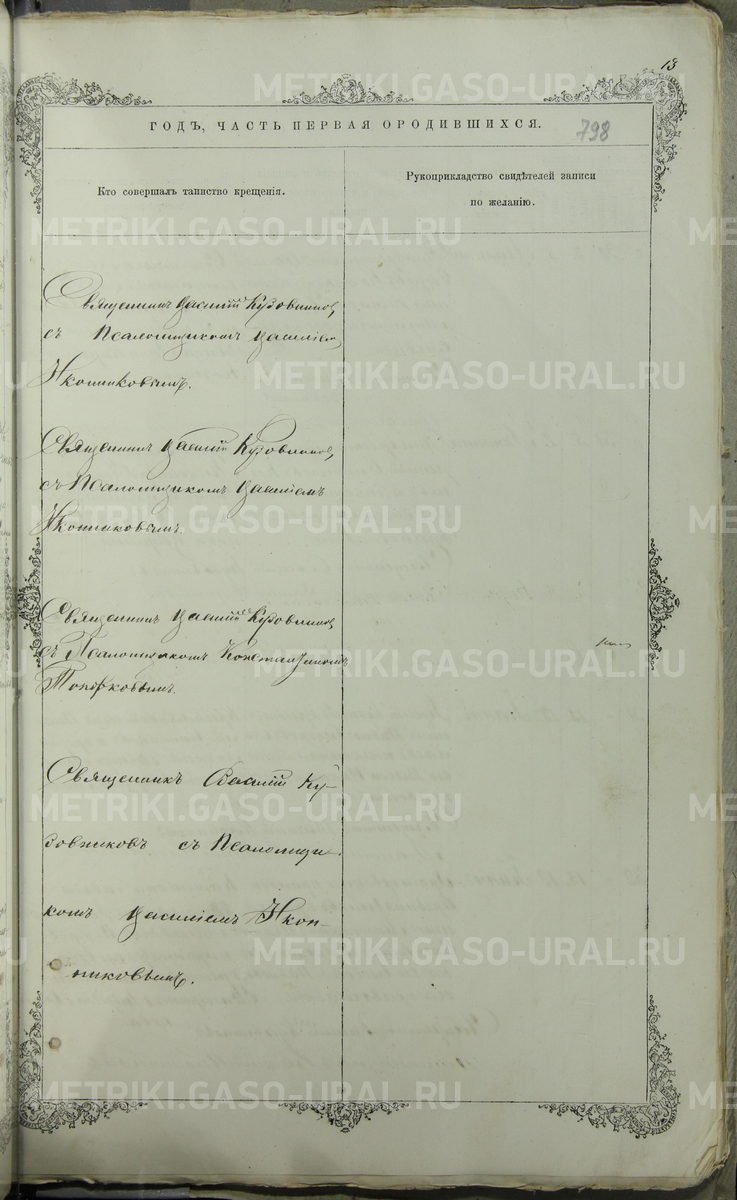 13
ГОДЪ, ЧАСТЬ ПЕРВАЯ О РОДИВШИХСЯ.
798
Кто совершалъ таинство крещенія.
Рукоприкладство свидѣтелей записи
по желанію.
Священникъ Василій Кузовниковъ,
съ Псаломщикомъ Василіемъ
Иконниковымъ.
Священникъ Василій Кузовниковъ,
съ Псаломщикомъ Василіемъ
Иконниковымъ.
Священникъ Василій Кузовниковъ,
съ Псаломщикомъ Константиномъ
Топорковымъ.
Священникъ Василій Ку-
зовниковъ съ Псаломщи-
комъ Василіемъ Икон-
никовымъ.
METRIKI.GASO-URAL.RU